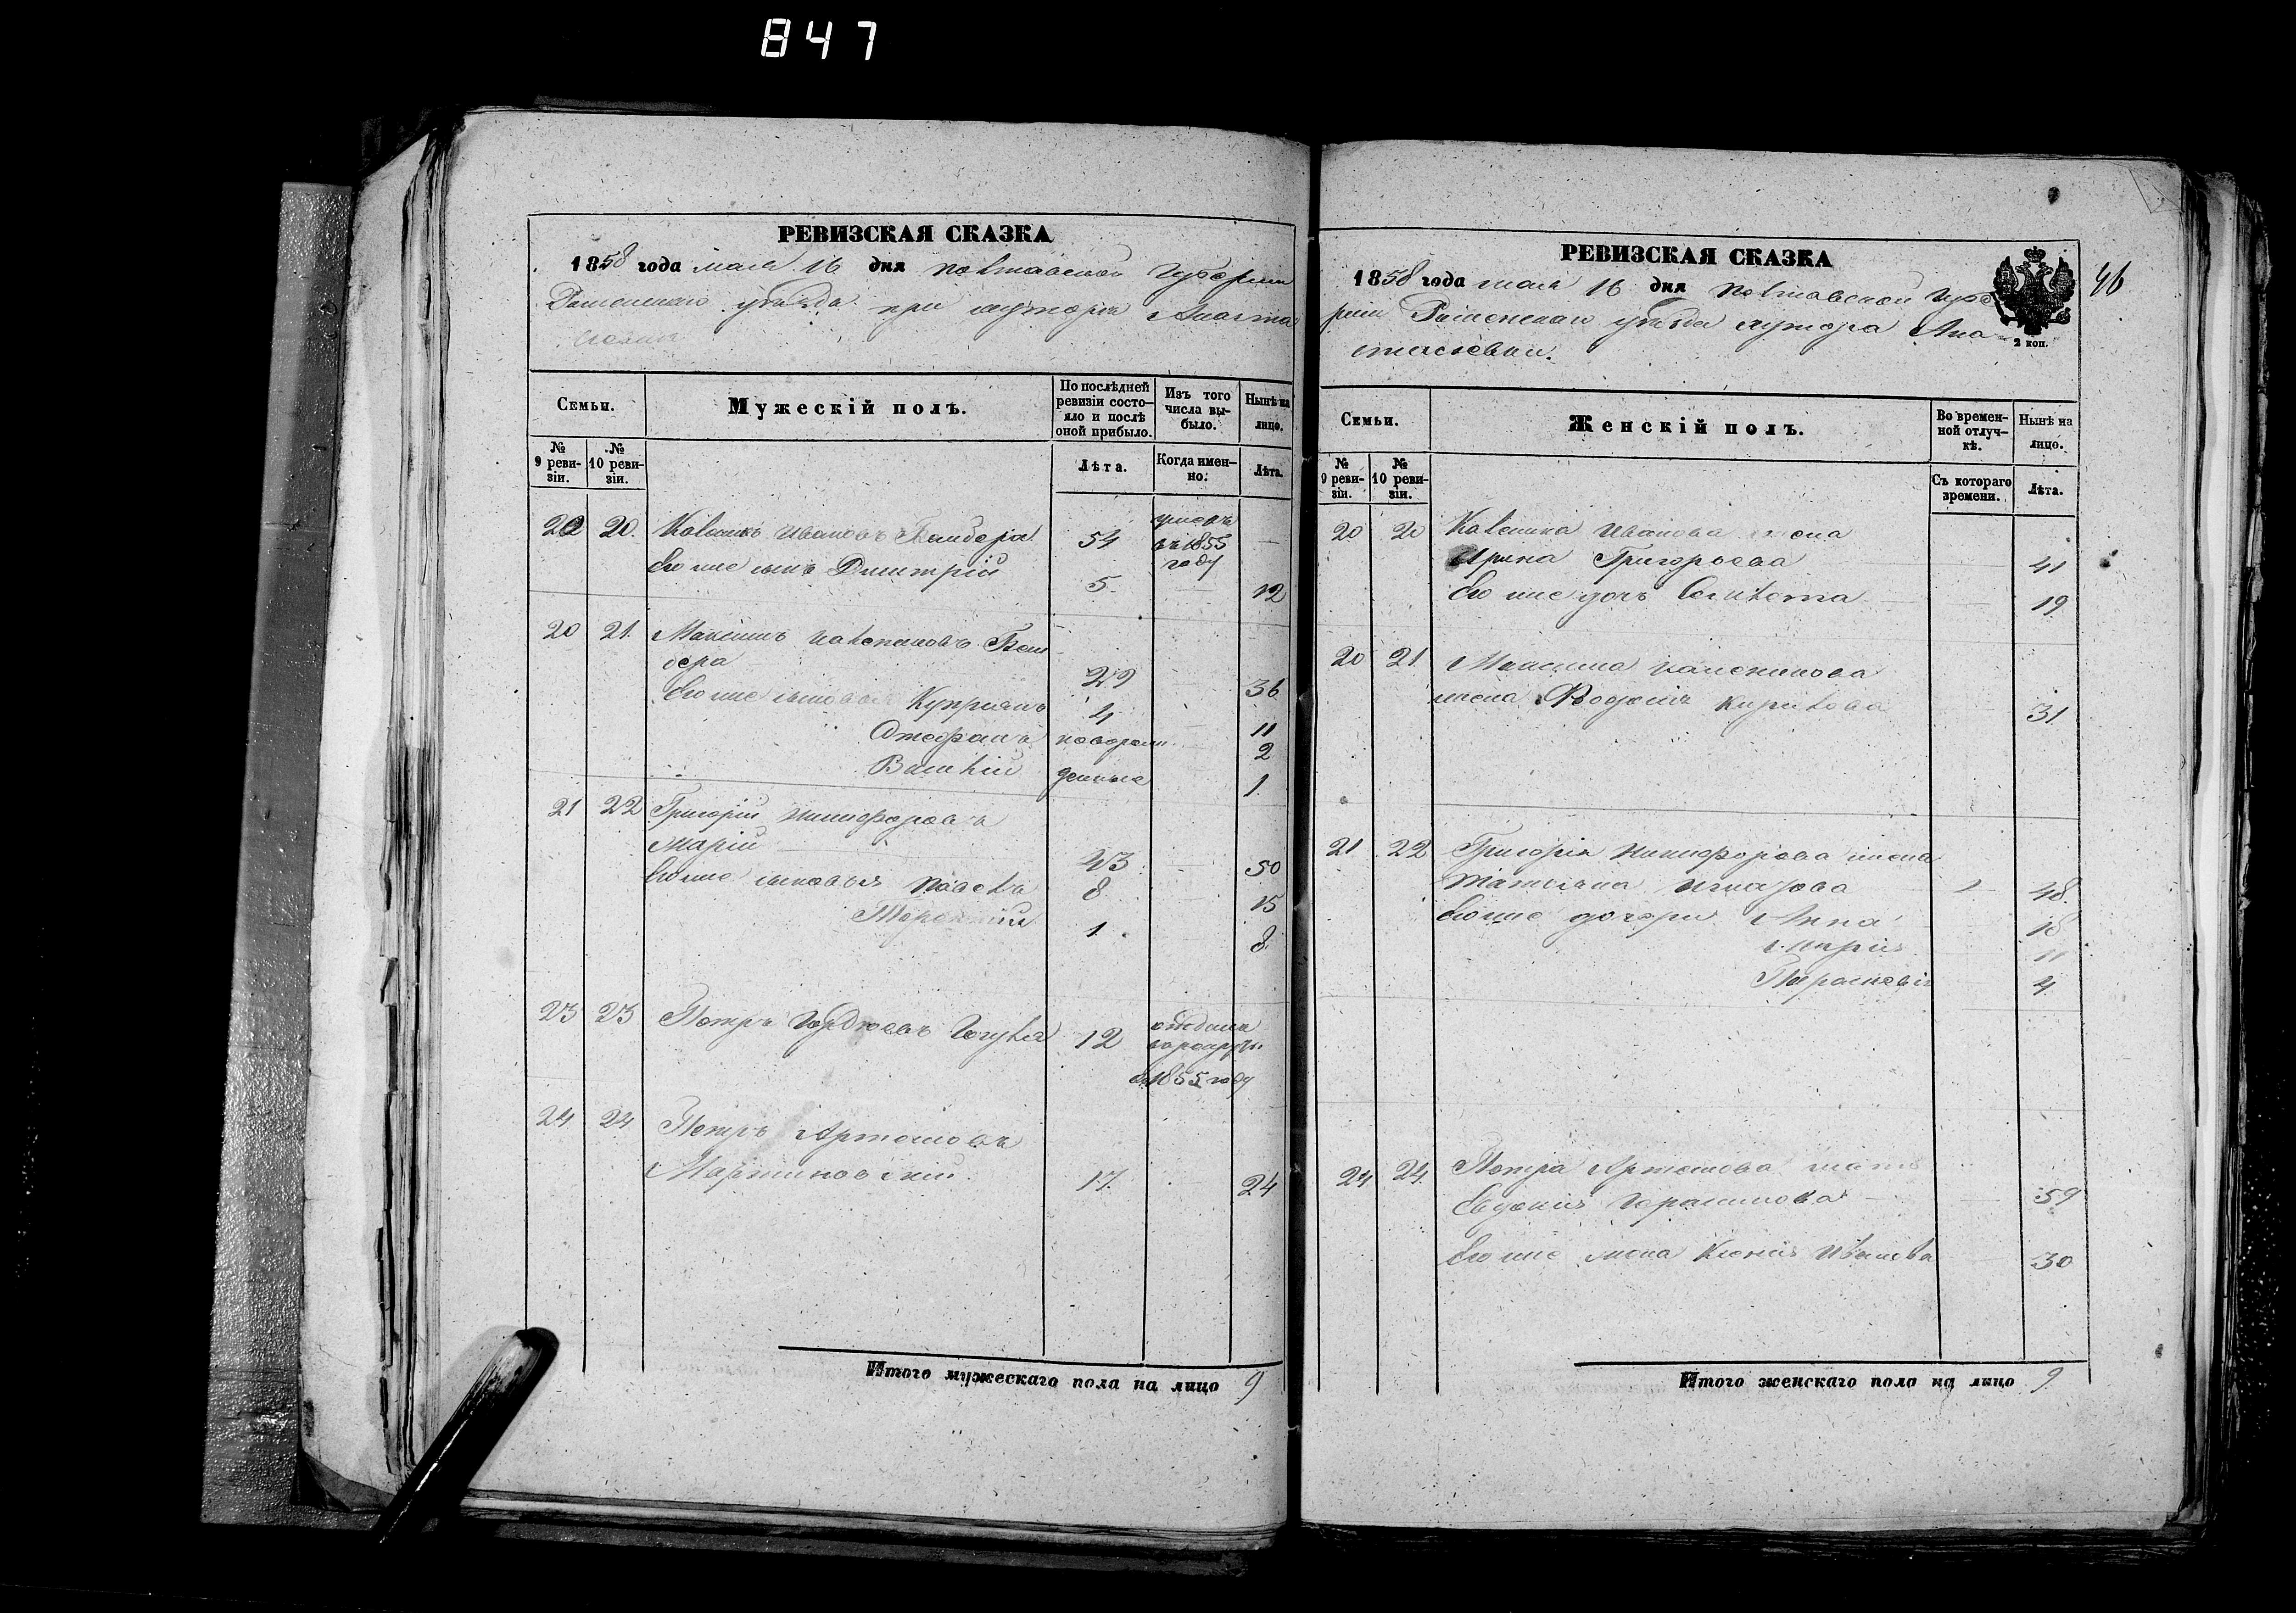 847
РЕВИЗСКАЯ СКАЗКА
1858 года мая 16 дня Полтавской Губернии
Роменскаго уѣзда при хуторѣ Анаста
Семьи.
Мужескій полъ.
По послѣдней ревизіи состояло и послѣ оной прибыло.
Изъ того числа выбыло.
Нынѣ на лицо.
№ 9 ревизіи.
№ 10 ревизіи.
Лѣта.
Когда именно.
Лѣта.
20 20. Иванов 54 въ 1855 году
Его же сынъ Дмитрій 5. 12
20 21. Максимъ
29 36
Его же сыновья Куприянъ 4 11
Стефанъ новорож 2
Василій денные 1
21 22 Григорій Никифоровъ
43 50
Его же сыновья Павелъ 8 15
1. 8
23 23 Петръ Гордѣевъ 12 отданъ
в 1855 году
24 24 Петръ Артемовъ
Мартиновскій. 17. 24
Итого мужескаго пола на лицо 9
РЕВИЗСКАЯ СКАЗКА
1858 года мая 16 дня Полтавской Губе
рніи Роменскаго уѣзда хутора Ана
стасіевки.
2 коп.
46
Семьи.
Женскій полъ.
Во временной отлучкѣ.
Нынѣ на лицо.
№ 9 ревизіи.
№ 10 ревизіи.
Съ котораго времени.
Лѣта.
20 20 Иванова жена
Ирина Григорьева 41
Его же дочь 19
20 21 Максима
жена Кирилова 31
21 22 Григорія Никифорова жена
Татьяна 48.
Его же дочери Анна 18
Марія 11
Параскевія 4
24 24 Петра Артемова мать
Евдокія Герасимова 59
Его же жена Ксенія Иванова 30
Итого женскаго пола на лицо 9